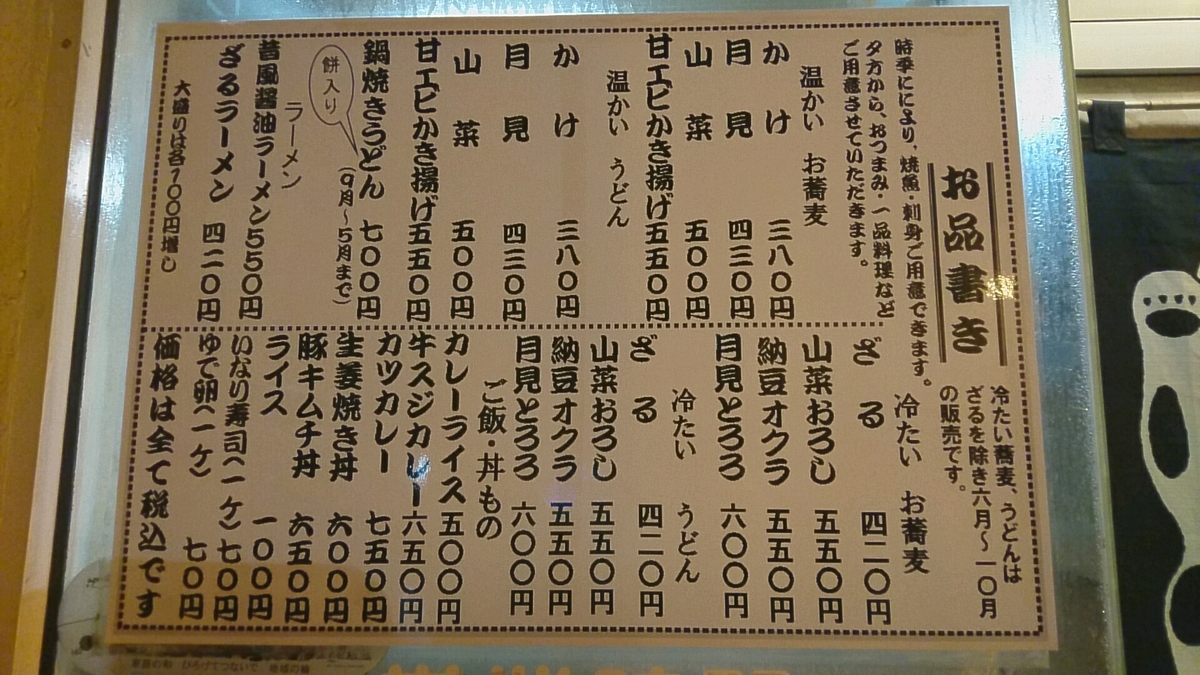 お品書き
時季にによリ、焼魚・刺身ご用意できます。
夕方から、おつまみ・一品料理など
ご用意させていただきます。
温かい お蕎麦
かけ 三八〇円
月見 四三〇円
山菜 五〇〇円
甘エビかき揚げ五五〇円
温かい うどん
かけ 三八〇円
月見 四三〇円
山菜 五〇〇円
甘エビかき揚げ五五〇円
鍋焼きうどん 七〇〇円
餅入り
(9月~5月まで)
ラーメン
昔風醤油ラーメン550円
ざるラーメン 四二〇円
大盛りは各100円増し
冷たい蕎麦、うどんは
ざるを除き六月~一〇月
の販売です。
冷たい お蕎麦
ざる 四二〇円
山菜おろし 五五〇円
納豆オクラ 五五〇円
月見とろろ 六〇〇円
冷たい うどん
ざる 四二〇円
山菜おろし 五五〇円
納豆オクラ 五五〇円
月見とろろ 六〇〇円
ご飯・丼もの
カレーライス 五〇〇円
牛スジカレー 六五〇円
カツカレー 七五〇円
生姜焼き丼 六〇〇円
豚キムチ丼 六五〇円
ライス 一〇〇円
いなり寿司(一ケ) 七〇円
ゆで卵(一ケ) 七〇円
価格は全て税込です